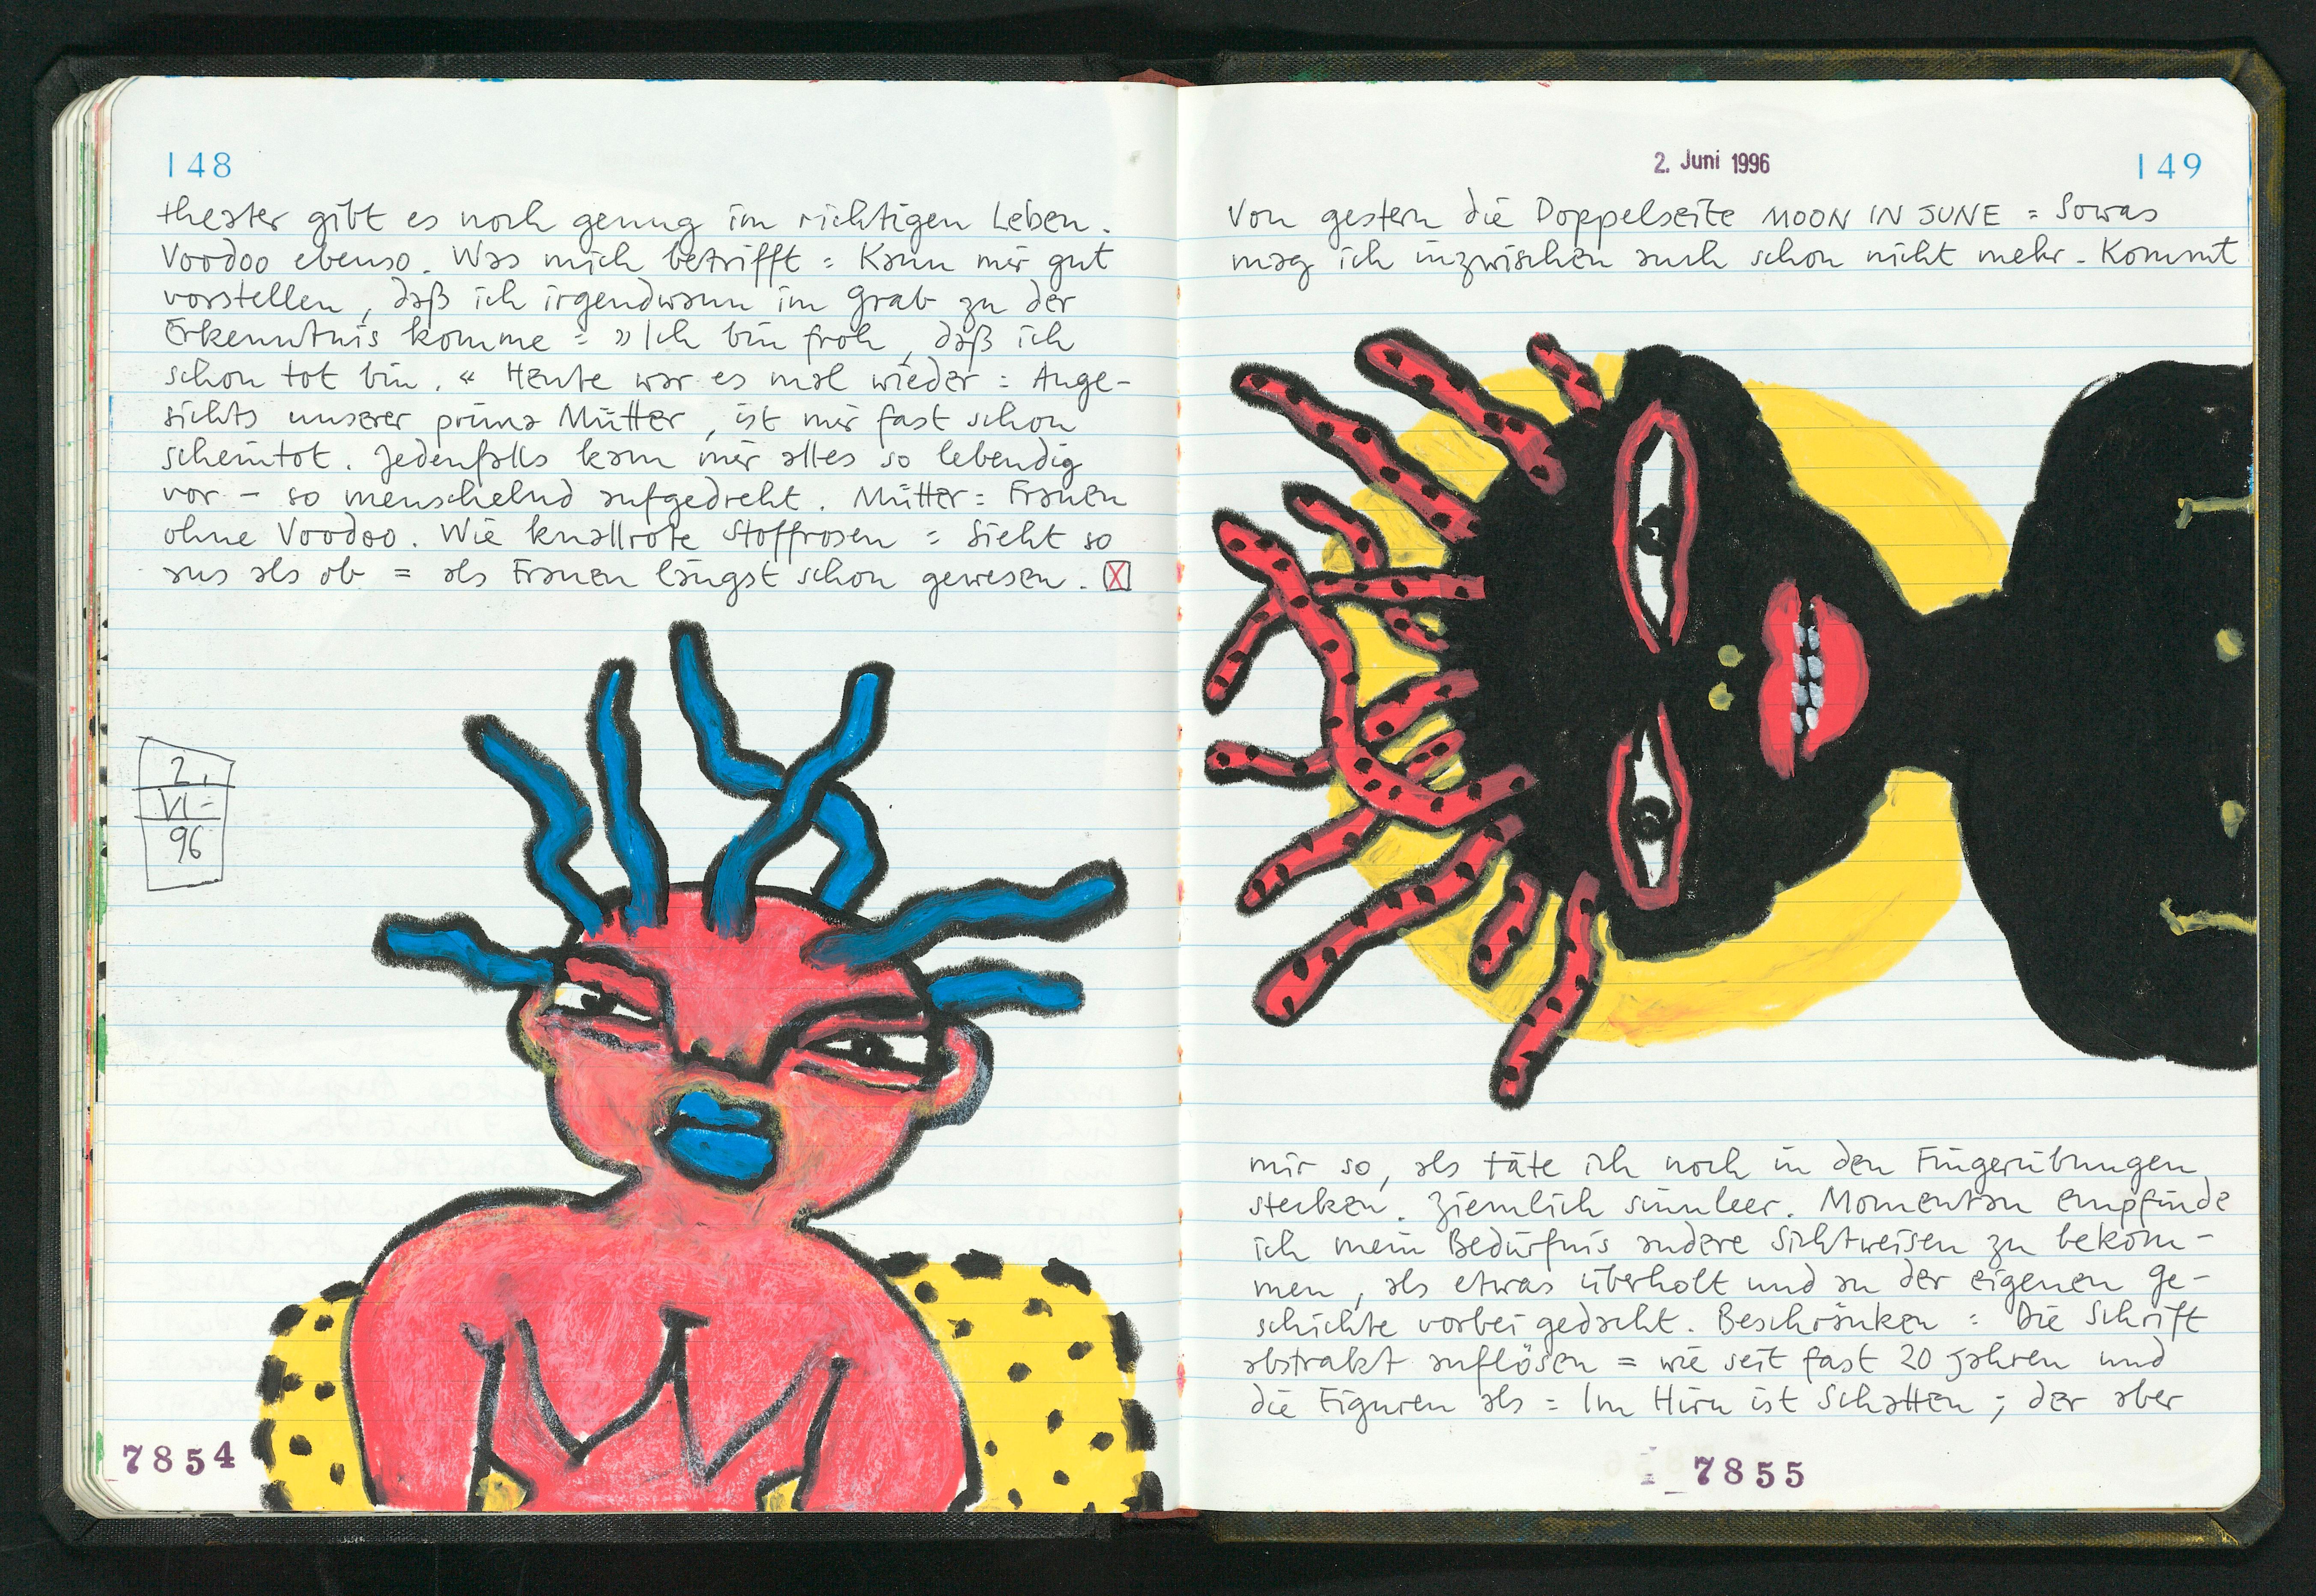 148
theater gibt es noch genug im richtigen Leben.
Voodoo ebenso. Was mich betrifft = Kann mir gut
vorstellen, daß ich irgendwann im Grab zu der
Erkenntnis komme = »Ich bin froh, daß ich
schon tot bin.« Heute war es mal wieder = Ange-
sichts unserer prima Mütter, ist mir fast schon
scheintot. Jedenfalls kam mir alles so lebendig
vor – so menschelnd aufgedreht. Mütter = Frauen
ohne Voodoo. Wie knallrote Stoffrosen = Sieht so
aus als ob = als Frauen längst schon gewesen. X
2.
VI-
96
7854
2. Juni 1996
149
Von gestern die Doppelseite MOON IN JUNE = Sowas
mag ich inzwischen auch schon nicht mehr. Kommt
mir so, als täte ich noch in den Fingerübungen
stecken. Ziemlich sinnleer. Momentan empfinde
ich mein Bedürfnis andere Sichtweisen zu bekom-
men, als etwas überholt und an der eigenen Ge-
schichte vorbei gedacht. Beschränken = Die Schrift
abstrakt auflösen = wie seit fast 20 Jahren und
die Figuren als = Im Hirn ist Schatten; der aber
7855